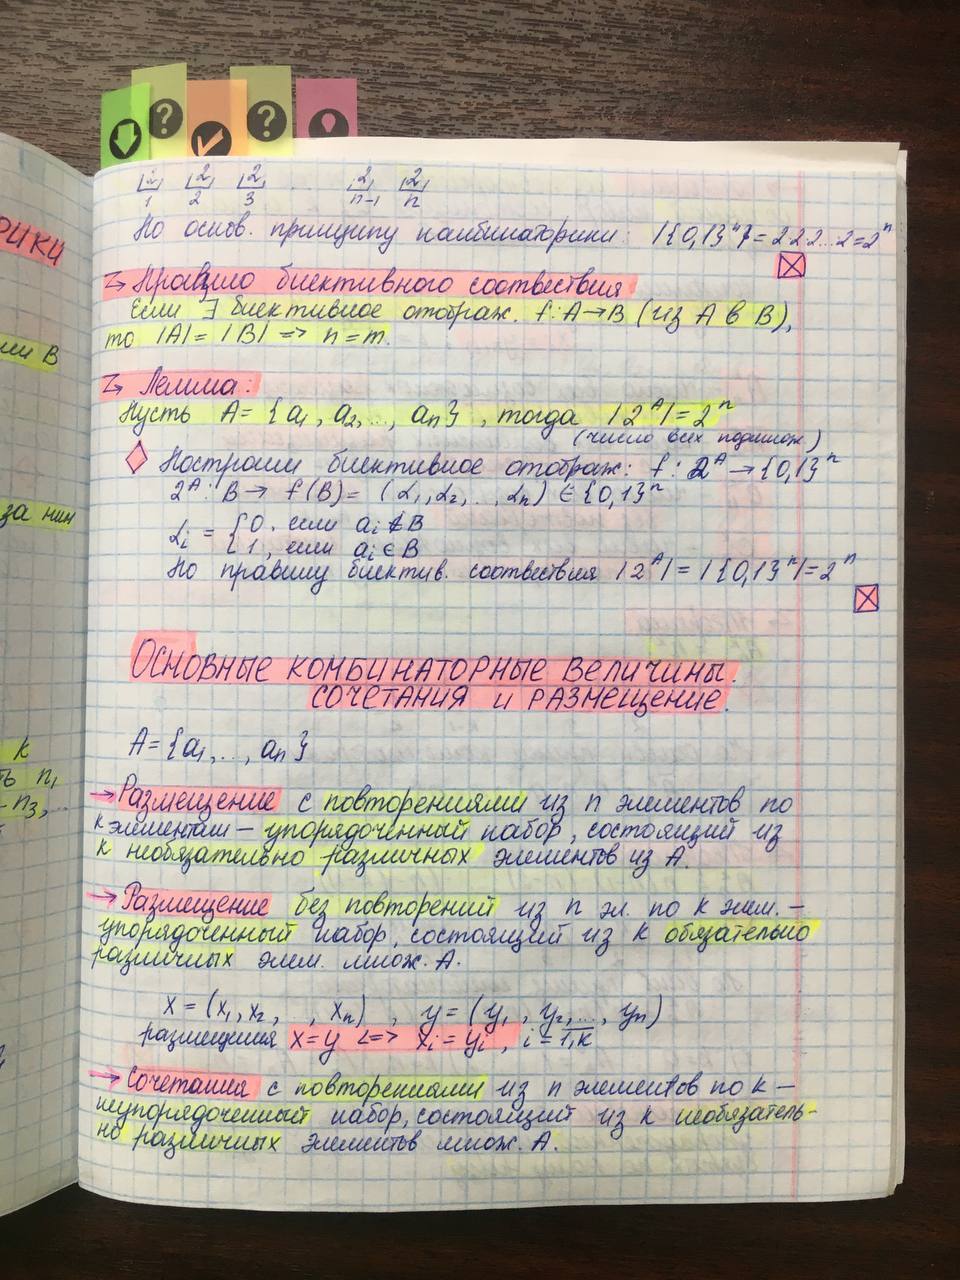 2 2 2 2 2
1 2 3 n-1 n
По основ. принципу комбинаторики: |{0,1}ⁿ| = 2·2·2...·2=2ⁿ
Правило биективного соотвествия
Если ∃ биективное отображ. f: A→B (из A в B),
то |A| = |B| => n = m.
Лемма:
Пусть A = {a₁, a₂,..., aₙ}, тогда |2ᴬ| = 2ⁿ
(число всех подмнож)
Построим биективное отображ: f : 2ᴬ → {0,1}ⁿ
2ᴬ: B → f(B) = (α₁, α₂, ..., αₙ) ∈ {0,1}ⁿ
αᵢ = {0, если aᵢ ∉ B
{1, если aᵢ ∈ B
По правилу биектив. соотвествия |2ᴬ| = |{0,1}ⁿ| = 2ⁿ
ОСНОВНЫЕ КОМБИНАТОРНЫЕ ВЕЛИЧИНЫ.
СОЧЕТАНИЯ И РАЗМЕЩЕНИЕ.
A = {a₁, ..., aₙ}
→ Размещение с повторениями из n элементов по
k элементам – упорядоченный набор, состоящий из
k необязательно различных элементов из A.
→ Размещение без повторений из n эл. по k элем. –
упорядоченный набор, состоящий из k обязательно
различных элем. множ. A.
x = (x₁, x₂, ..., xₙ), y = (y₁, y₂,..., yₙ)
размещения x=y <=> xᵢ = yᵢ, i = 1,k
→ Сочетания с повторениями из n элементов по k –
неупорядоченный набор, состоящий из k необязатель-
но различных элементов множ. A.
ии B
за ним
k
ть n₁
n₃,...